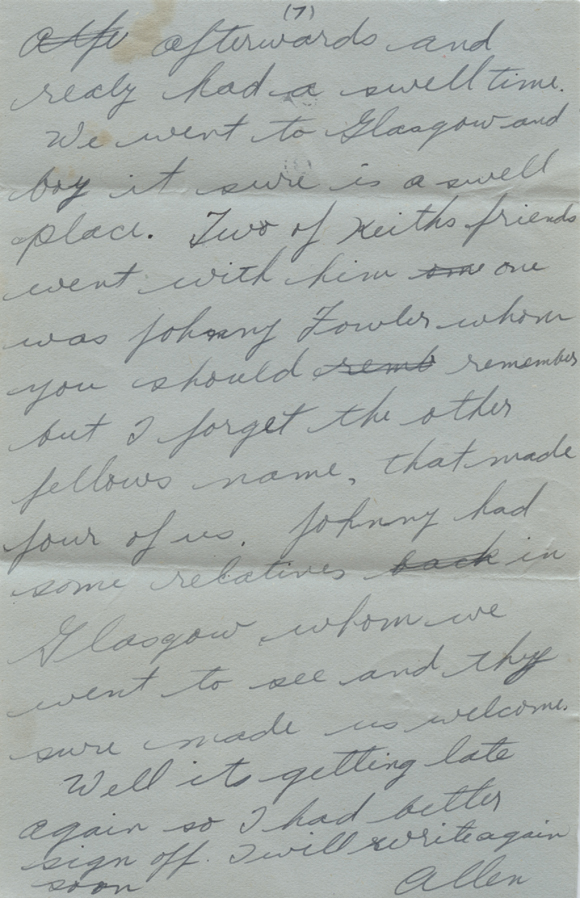 (7)
afte afterwards and
realy had a swell time.
We went to Glasgow and
boy it sure is a swell
place. Two of Keiths friends
went with him one
was Johnny Fowler whom
you should remb remember
but I forget the other
fellows name, that made
four of us. Johnny had
some relatives back in
Glasgow whom we
went to see and they
sure made us welcome.
Well its getting late
again so I had better
sign off. I will write again
soon
Allen